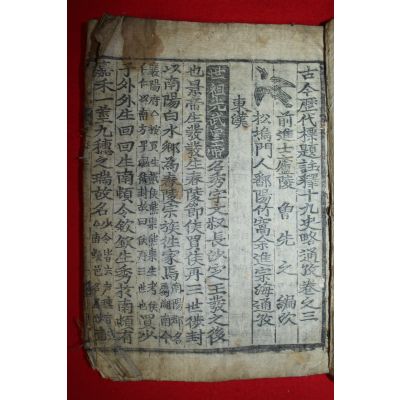 古今歷代標題註釋十九史略通攷卷之三
前進士廬陵 曾 先之 編次
松塢門人鄱陽竹窩余進宗海通攷
東漢
世祖光武皇帝名秀字文叔長沙定王發之後
也景帝生發發生舂陵節侯買侯再三世徙封
以南陽白水鄉為舂陵宗族往家焉
買少
子外外生回回生南頓令欽欽生秀於南頓有
嘉禾一莖九穗之瑞故名